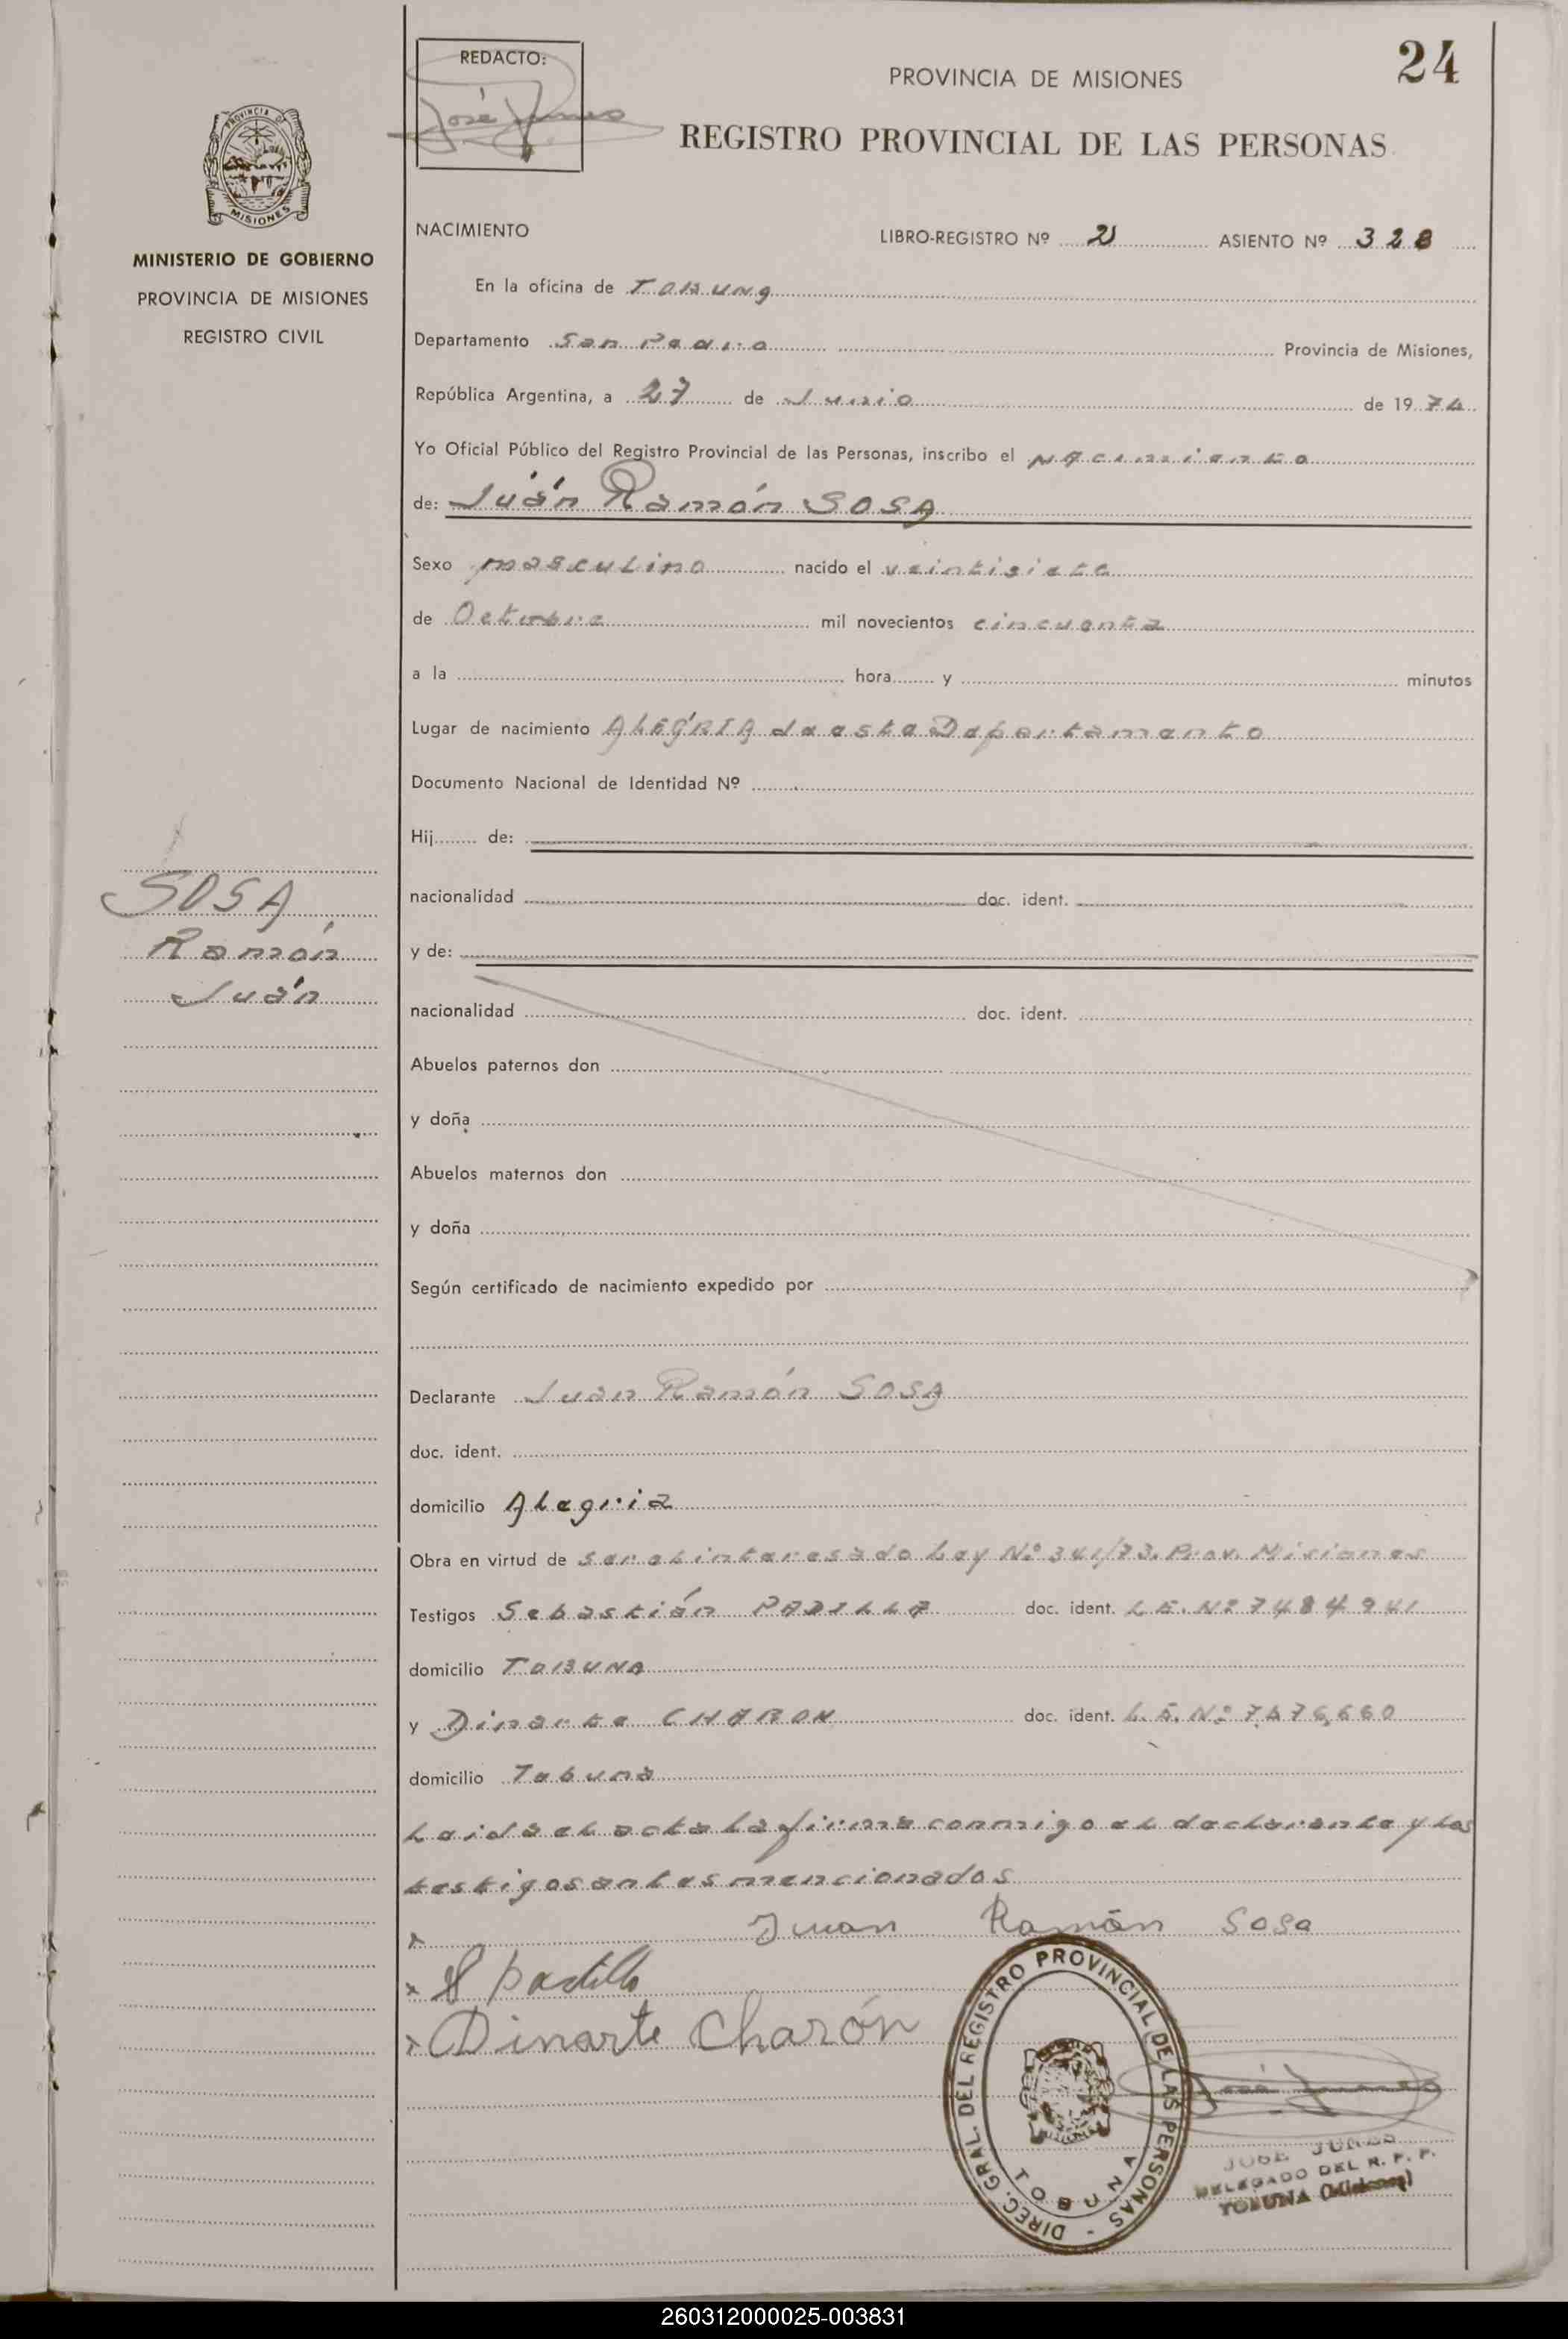 REDACTO:
José Junes
24
PROVINCIA DE MISIONES
REGISTRO PROVINCIAL DE LAS PERSONAS
PROVINCIA DE
MISIONES
MINISTERIO DE GOBIERNO
PROVINCIA DE MISIONES
REGISTRO CIVIL
NACIMIENTO
LIBRO-REGISTRO Nº 21 ASIENTO Nº 328
En la oficina de TOBUNA
Departamento San Pedro Provincia de Misiones,
República Argentina, a 27 de Junio de 1974
Yo Oficial Público del Registro Provincial de las Personas, inscribo el nacimiento
de: Juán Ramón SOSA
Sexo masculino nacido el veintisiete
de Octubre mil novecientos cincuenta
a la hora y minutos
Lugar de nacimiento ALEGRIA de este Departamento
Documento Nacional de Identidad Nº
Hij de:
nacionalidad doc. ident.
y de:
nacionalidad doc. ident.
Abuelos paternos don
y doña
Abuelos maternos don
y doña
Según certificado de nacimiento expedido por
SOSA,
Ramón
Juán
Declarante Juán Ramón SOSA
doc. ident.
domicilio Alegria
Obra en virtud de ser el interesado Ley Nº 341/73. Prov. Misiones
Testigos Sebastián PADILLA doc. ident. L.E. Nº 7484941
domicilio TOBUNA
y Dinarte CHARON doc. ident. L.E. Nº 7.476,660
domicilio Tobuna
Leida el acta la firma conmigo el declarante y los
testigos antes mencionados
x Juan Ramón Sosa
x S Padilla
x Dinarte Charón
DIREC. GRAL. DEL REGISTRO PROVINCIAL DE LAS PERSONAS -
TOBUNA
José Junes
JOSE JUNES
DELEGADO DEL R. P. P.
TOBUNA (Misiones)
260312000025-003831